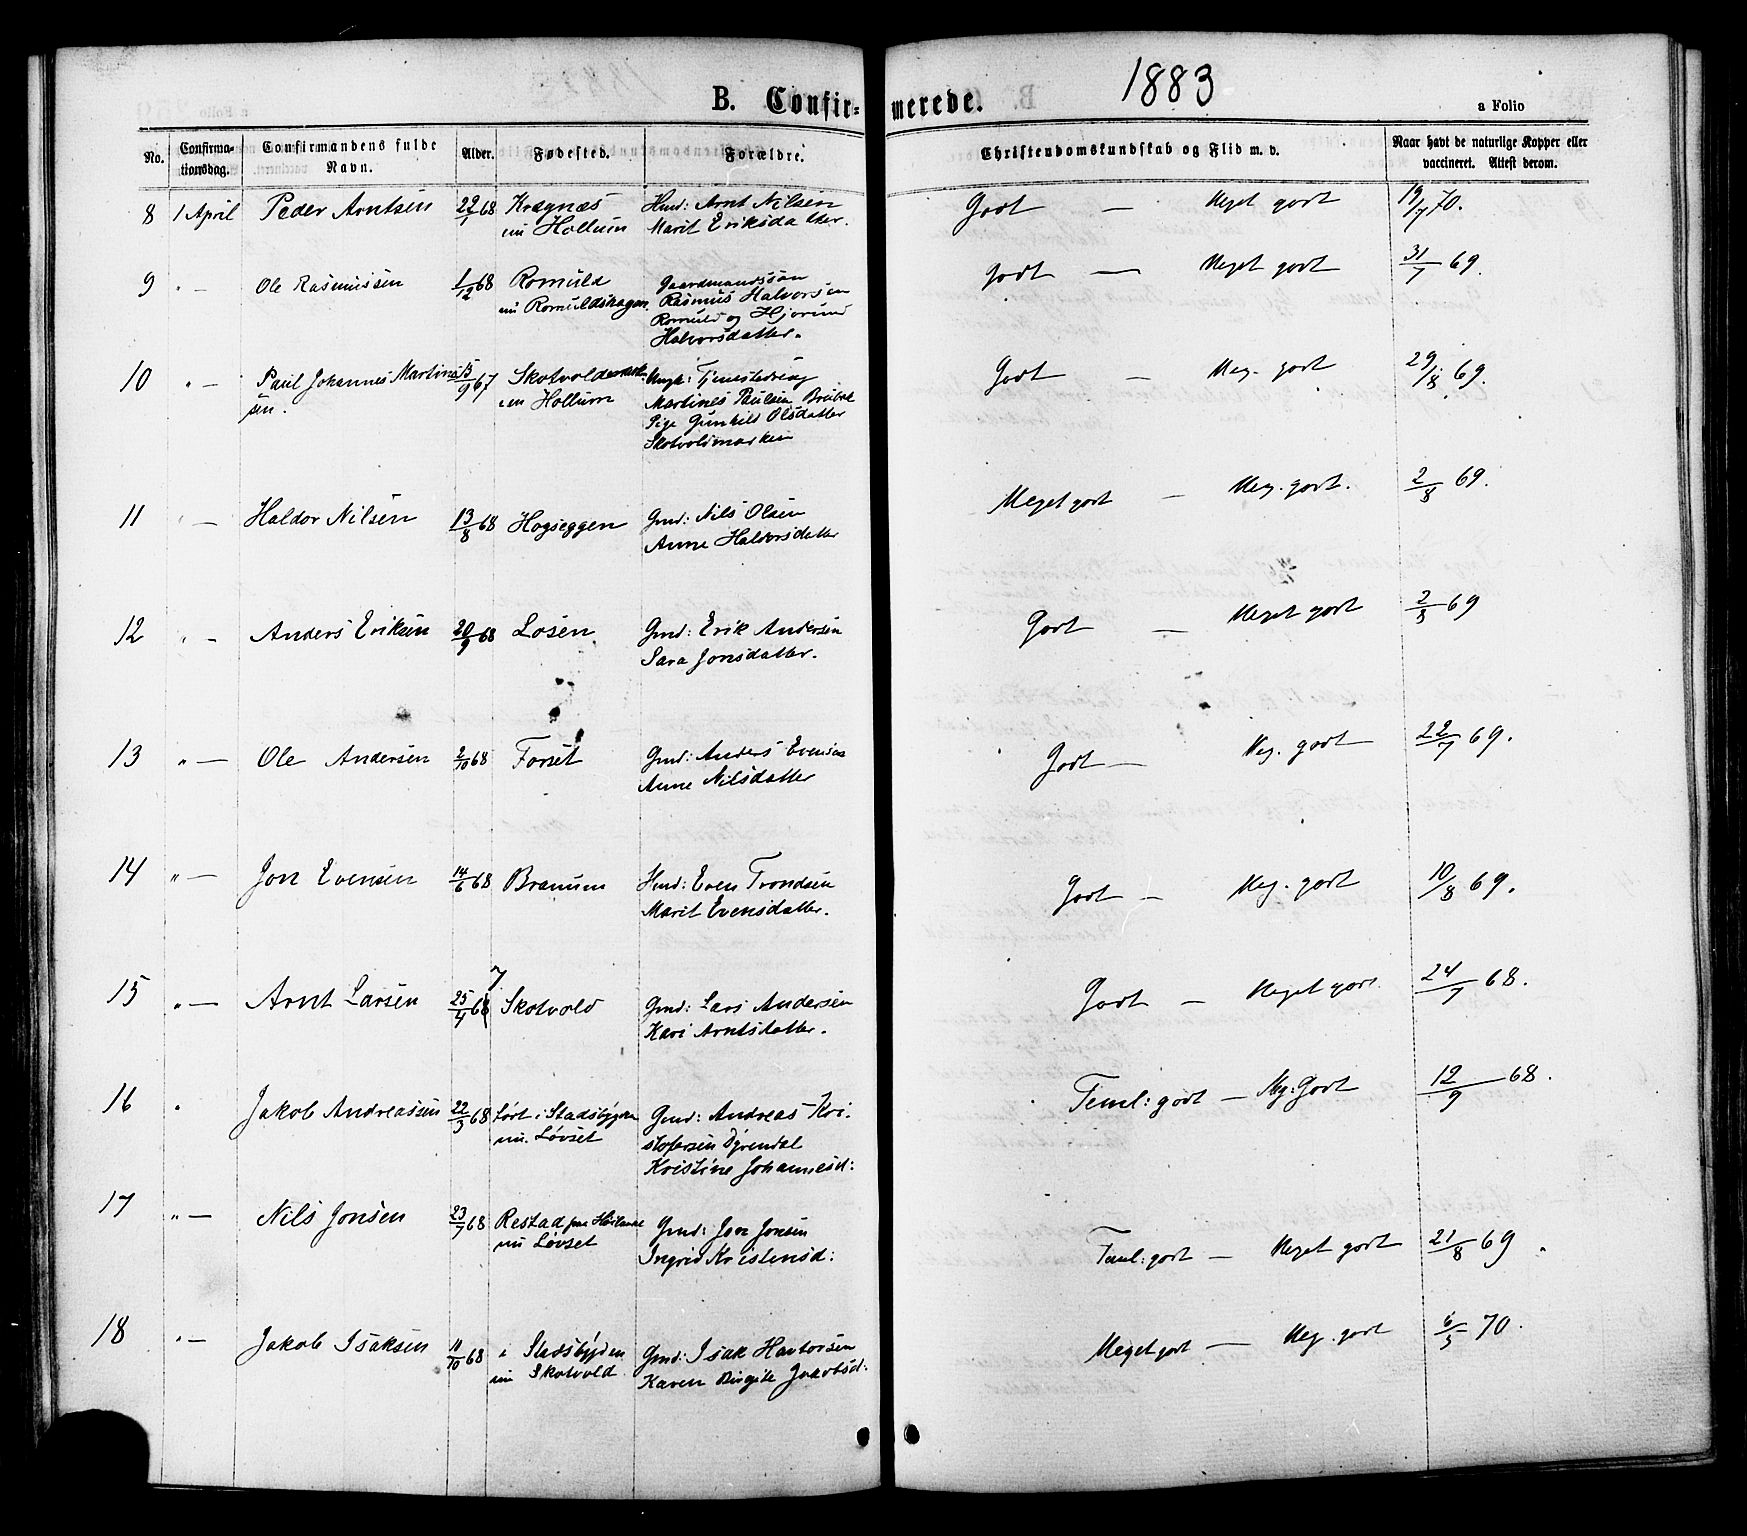 B. Confir- merede. 1883 a Folio
No. Confirma-tionsdag. Confirmandens fulde Navn. Alder. Fødested. Forældre. Christendomskundskab og Flid m. v. Naar havt de naturlige Kopper eller vaccineret. Attest derom.
8 1 April Peder Arntsen 22/1 68 Kregnæs Hmd: Arnt Nilsen Godt — Meget godt 19/7 70.
nu Hollum Marit Eriksdatter.
9 " — Ole Rasmussen 1/12 68 Romuld Gaardmandssøn Godt — Meget godt 31/7 69.
nu Romuldshagen Rasmus Halvorsen
Romuld og Hjorund
Halvorsdatter.
10 " — Paul Johannes Martine 15/9 67 Skotvold Ungk: Tjenestedreng Godt — Meg. godt 29/8 69.
sen. nu Hollum Martines Paulsen
Pige Gunhild Olsdatter
Skotvoldmarken
11 " — Haldor Nilsen 13/8 68 Hogseggen Gmd: Nils Olsen Meget godt — Meg. godt. 2/8 69.
Anne Haldorsdatter
12 " — Anders Eriksen 20/9 68 Losen Gmd: Erik Andersen Godt — Meget godt 2/3 69
Sara Jonsdatter.
13 " — Ole Andersen 2/10 68 Forset Gmd: Anders Evensen Godt — Meg. godt 22/7 69.
Anne Nilsdatter
14 " — Jon Evensen 14/6 68 Branum Hmd: Even Trondsen Godt — Meg. godt 10/8 69.
Marit Evensdatter.
15 " — Arnt Larsen 25/4 68 7 Skotvold Gmd: Lars Andersen Godt — Meget godt 24/7 68.
Kari Arntsdatter.
16 " Jakob Andreassen 22/3 68 født i Stadsbygden Gmd: Andreas Kri- Teml: godt — Mg: Godt 12/9 68.
nu. Løvset stofersen Dyrendal
Kristine Johannesd:
17 " — Nils Jonsen 23/7 68 Restad Gmd: Jon Jonsen Teml: godt — Meget godt 21/8 69.
nu Løvset Ingrid Kristensd:
18 " — Jakob Isaksen 11/10 68 i Stadsbygden Gmd: Isak Havtorsen Meget godt — Meg. godt 6/5 70.
nu Skotvold Karen Birgite Jakobsd: